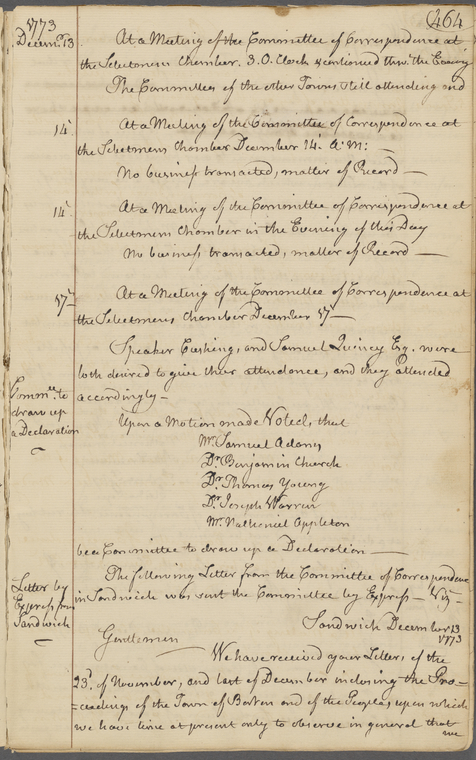 (464
1773
Decemr. 13
At a Meeting of the Committee of Correspondence at
the Selectmens Chamber. 3. O.Clock & continued thro' the Evening
The Committees of the other Towns still attending and
14.
At a Meeting of the Committee of Correspondence at
the Selectmens Chamber December 14. A:M: —
No business transacted, matter of Record —
14.
At a Meeting of the Committee of Correspondence at
the Selectmens Chamber in the Evening of this Day
No business transacted, matter of Record —
17—
At a Meeting of the Committee of Correspondence at
the Selectmens Chamber December 17—
Speaker Cushing, and Samuel Quincy Esq. were
both desired to give their attendance, and they attended
accordingly—
Commee. to
draw up
a Declaration
Upon a Motion made Voted, that
Mr. Samuel Adams
Dr. Benjamin Church
Dr. Thomas Young
Dr. Joseph Warren
Mr. Nathaniel Appleton
be a Committee to draw up a Declaration —
Letter by
Express from
Sandwich
The following Letter from the Committee of Correspondence
in Sandwich was sent the Committee by Express — Viz—
Sandwich December 13
1773
Gentlemen
We have received your Letters, of the
23d. of November, and last of December inclosing the Pro=
=ceedings of the Town of Boston and of the People, upon which
we have time at present only to observe in general that
we